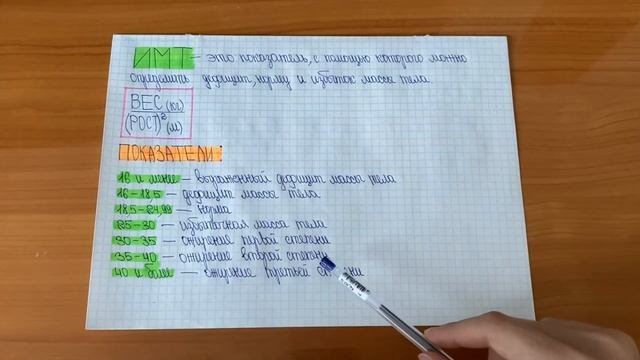 ИМТ - это показатель, с помощью которого можно
определить дефицит, норму и избыток массы тела.
ВЕС (кг)
(РОСТ)² (м)
ПОКАЗАТЕЛИ:
16 и менее - выраженный дефицит массы тела
16-18,5 - дефицит массы тела
18,5-24,99 - норма
25-30 - избыточная масса тела
30-35 - ожирение первой степени
35-40 - ожирение второй степени
40 и более - ожирение третьей